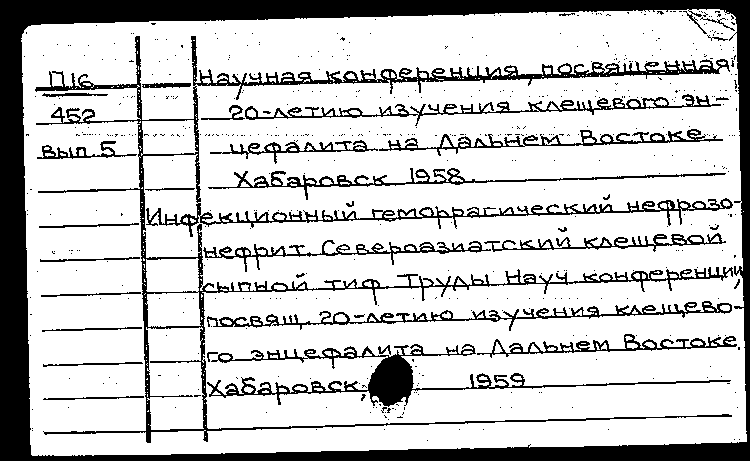 П16 Научная конференция, посвященная
452 20-летию изучения клещевого эн-
вып. 5 цефалита на Дальнем Востоке.
Хабаровск 1958.
Инфекционный геморрагический нефрозо-
нефрит. Североазиатский клещевой
сыпной тиф. Труды Науч конференции,
посвящ. 20-летию изучения клещево-
го энцефалита на Дальнем Востоке.
Хабаровск, 1959